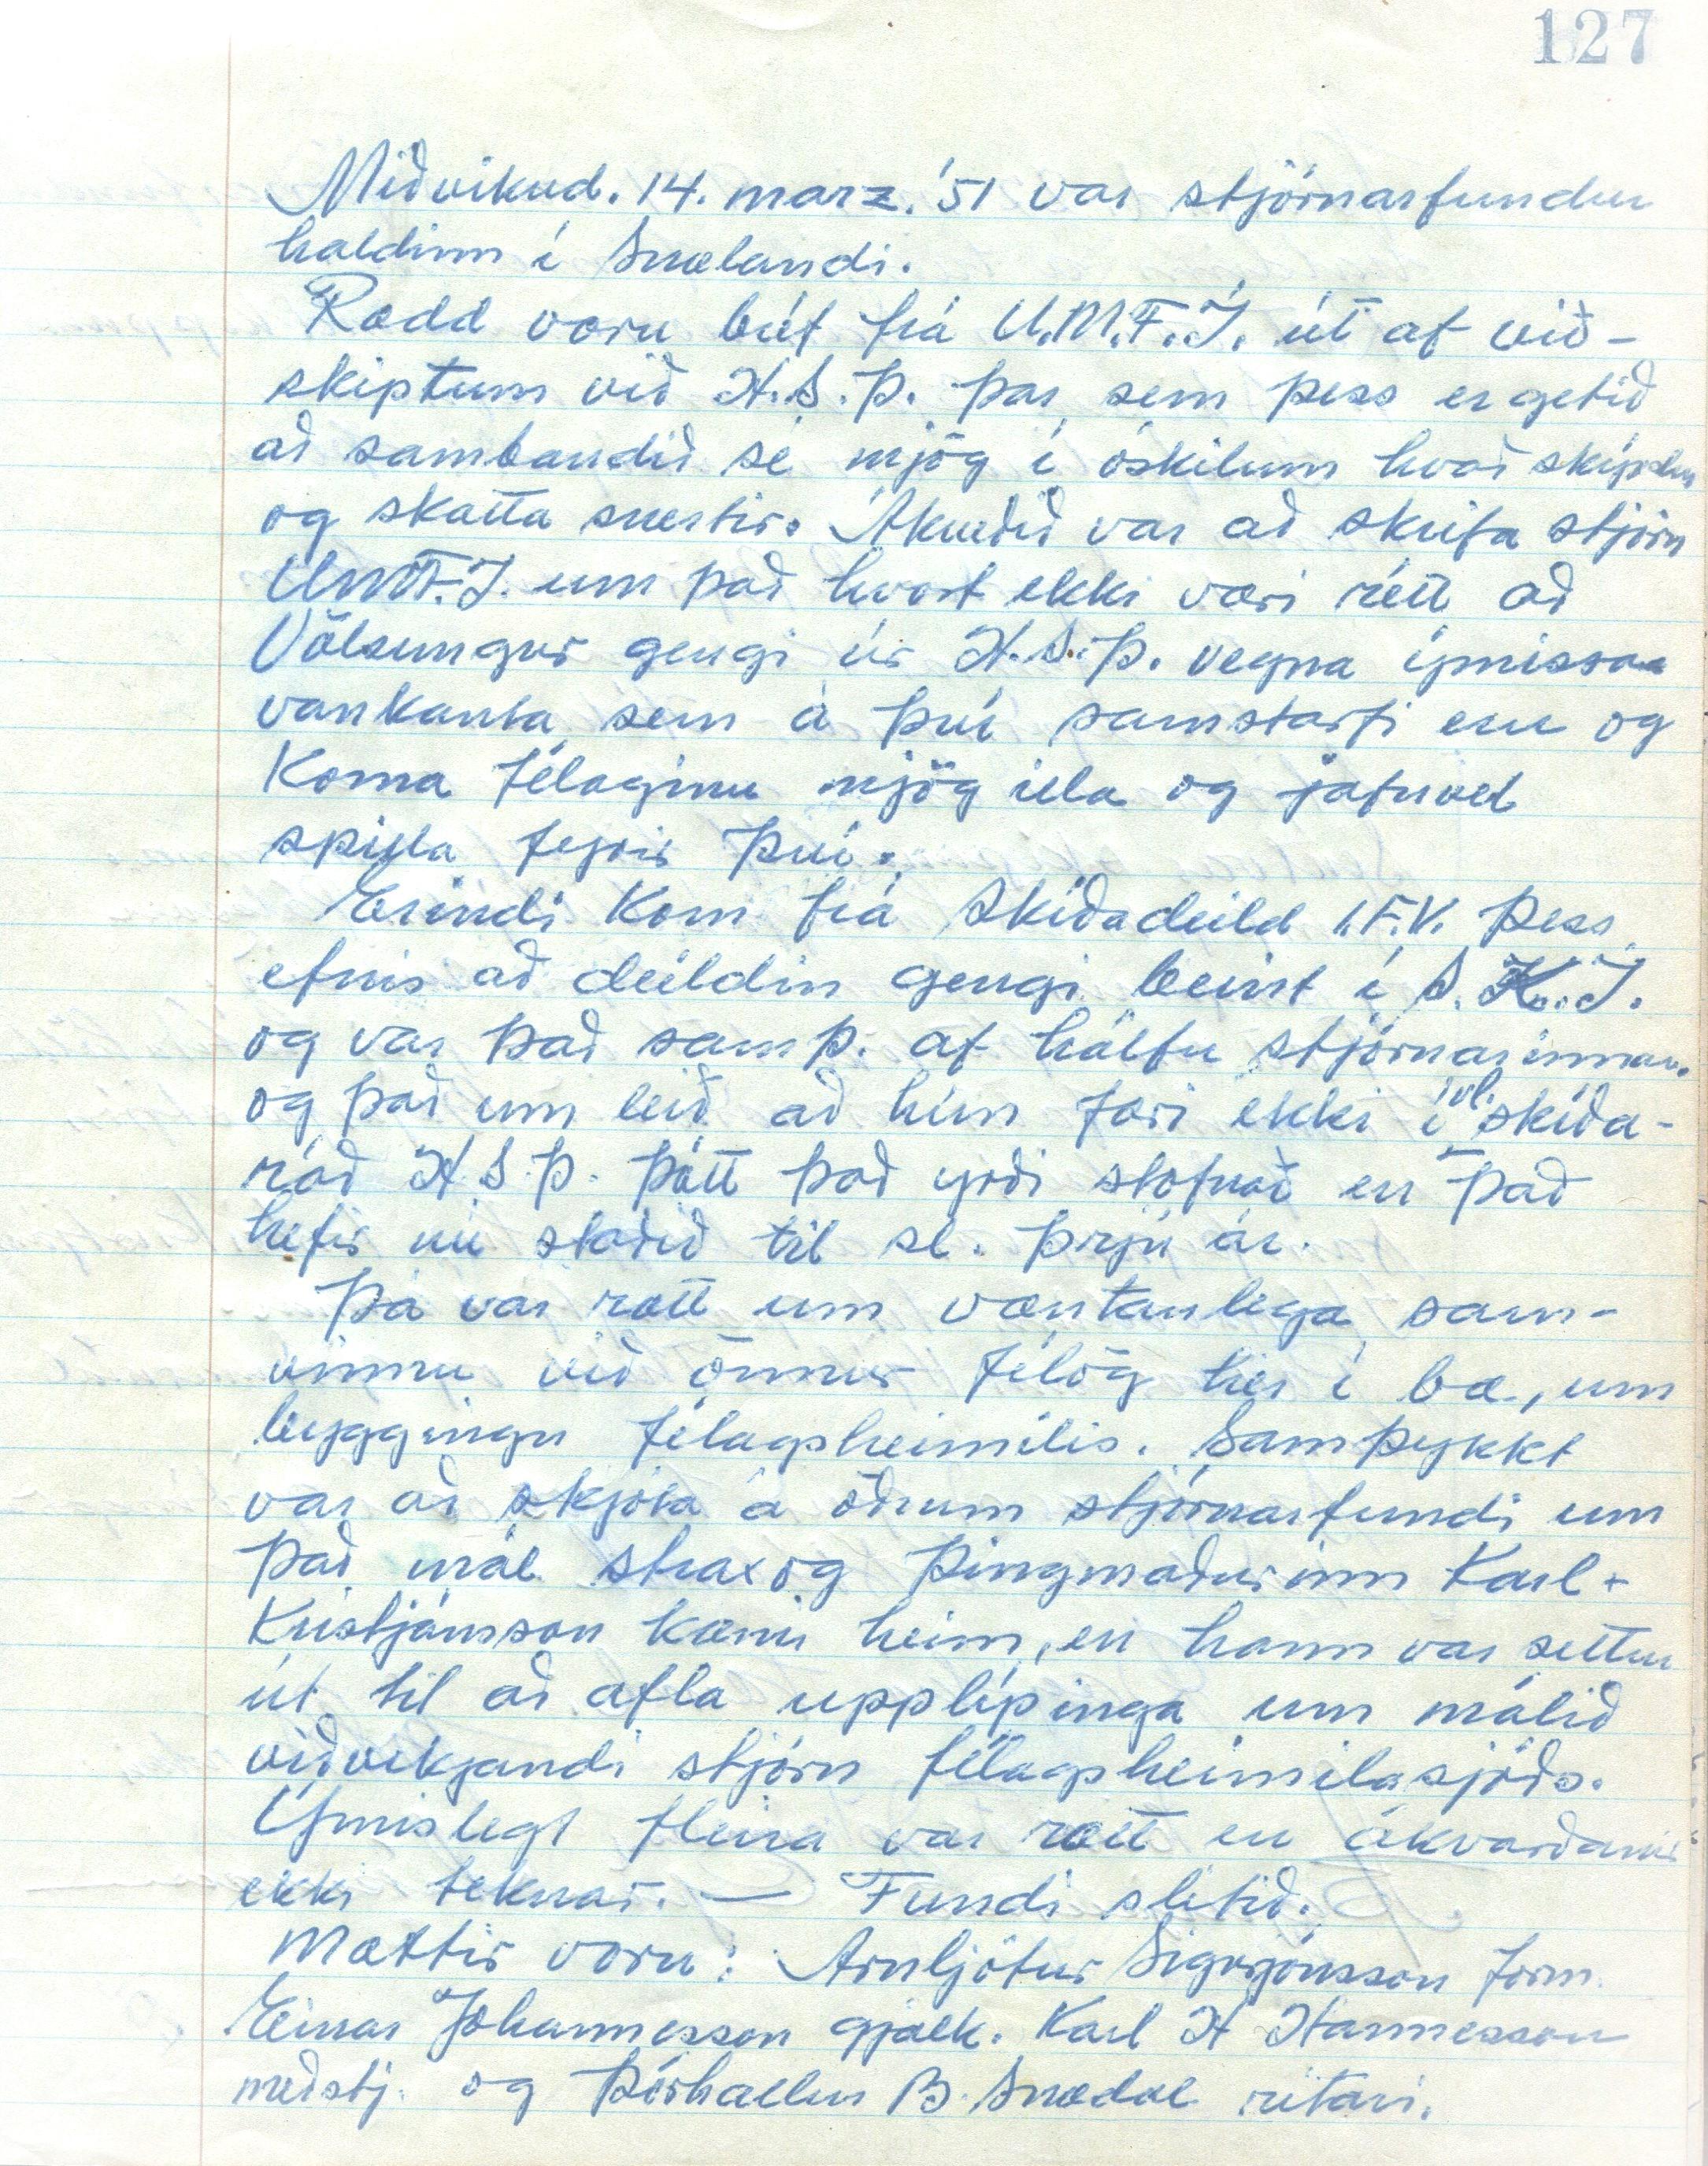 127
Miðvikud. 14. marz. '51 var stjórnarfundur
haldinn í Snælandi.
Rædd voru bréf frá U.M.F.Í. út af við-
skiptum við H.S.Þ. þar sem þess er getið
að sambandið sé mjög í óskilum hvað skýrslur
og skatta snertir. Ákveðið var að skrifa stjórn
UMF.Í. um það hvort ekki væri rétt að
Völsungur gengi úr H.S.Þ. vegna ýmissa
vankanta sem á því samstarfi eru og
koma félaginu mjög illa og jafnvel
spilla fyrir því.
Erindi kom frá Skíðadeild Í.F.V. þess
efnis að deildin gengi beint í S.K.Í.
og var það samþ. af hálfu stjórnarinnar.
og það um leið að hún færi ekki í vl. skíða-
ráð H.S.Þ. þótt það yrði stofnað en það
hefir nú staðið til sl. þrjú ár.
Þá var rætt um væntanlega sam-
vinnu við önnur félög hér í bæ, um
byggingu félagsheimilis. Samþykkt
var að skjóta á öðrum stjórnarfundi um
það mál strax og þingmaðurinn Karl
Kristjánsson kæmi heim, en hann var settur
út til að afla upplýsinga um málið
viðvíkjandi stjórn félagsheimilasjóðs.
Ýmislegt fleira var rætt en ákvarðanir
ekki teknar. — Fundi slitið.
Mættir voru: Arnljótur Sigurjónsson form.
Einar Jóhannesson gjaldk. Karl H Hannesson
meðstj. og Þórhallur B. Snædal ritari.